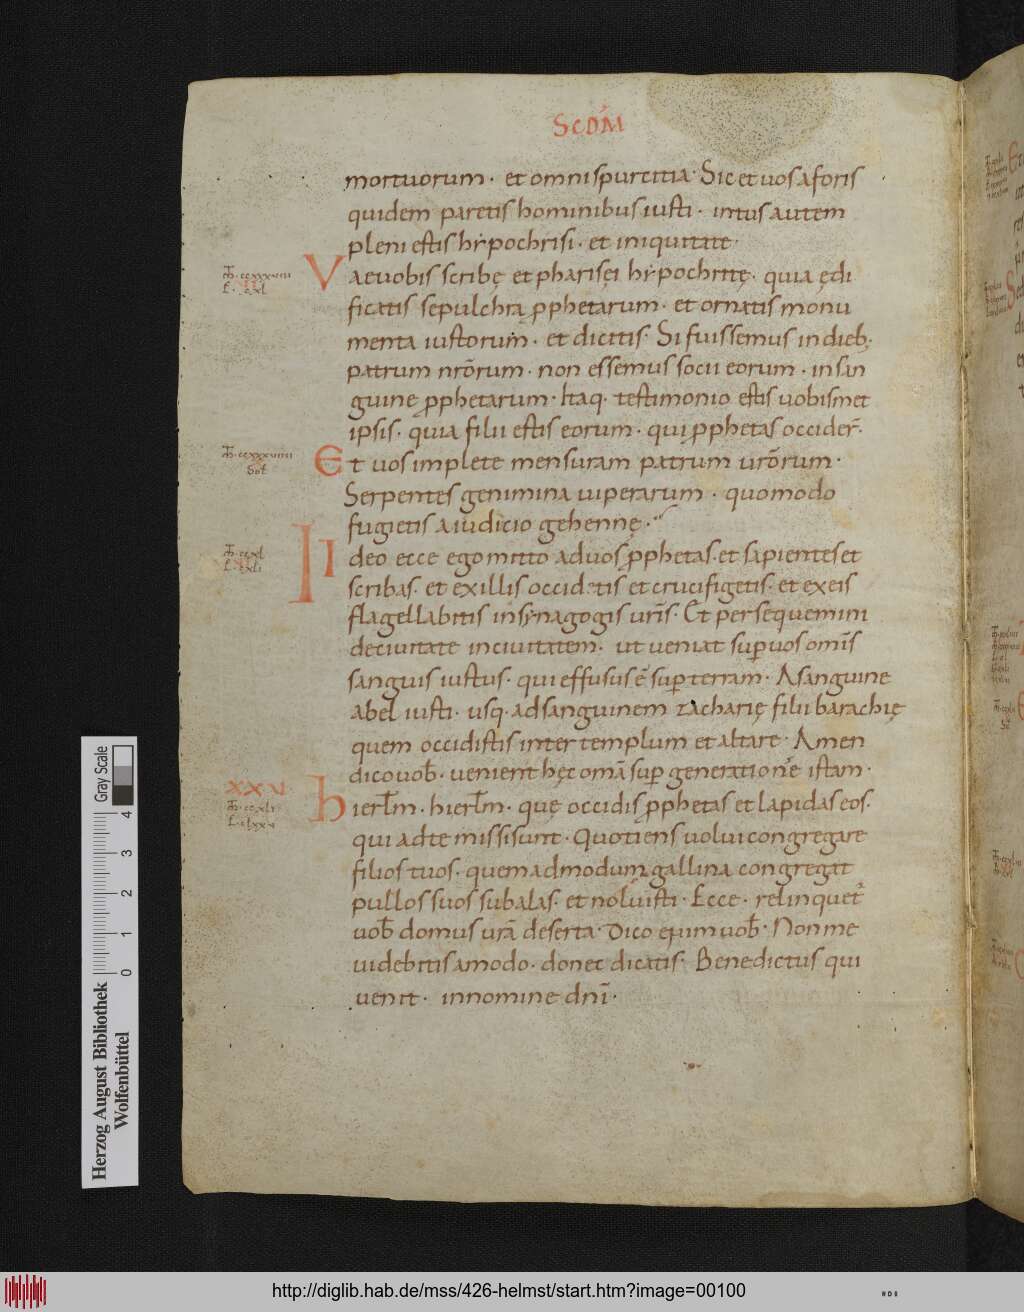 SCDM
mortuorum· et omni spurcitia· Sic et uos aforis
quidem paretis hominibus iusti· intus autem
pleni estis hẏpochrisi· et iniquitate·
Vae uobis scribę et pharisęi hẏpochritę· quia ędi
ficatis sepulchra ꝓphetarum· et ornatis monu
menta iustorum· et dicitis· Si fuissemus in dieb;
patrum nr̄orum· non essemus socii eorum· in san
guine ꝓphetarum· Itaq· testimonio estis uobismet
ipsis· quia filii estis eorum· qui ꝓphetas occider̄·
Et uos implete mensuram patrum ur̄orum·
Serpentes genimina uiperarum· quomodo
fugietis a iudicio gehennę·
Ideo ecce ego mitto ad uos ꝓphetas· et sapientes et
scribas· et ex illis occidetis et crucifigetis· et ex eis
flagellabitis in sẏnagogis ur̄is· Et persequemini
de ciuitate in ciuitatem· ut ueniat sup̱ uos om̄is
sanguis iustus· qui effusus ē sup̱ terram· A sanguine
abel iusti· usq· ad sanguinem zacharię filii barachię
quem occidistis inter templum et altare· Amen
dico uob̄· uenient hęc om̄a sup̱ generatione istam·
XXV
hierl̄m· hierl̄m· quę occidis ꝓphetas et lapidas eos·
qui ad te missi sunt· Quotiens uolui congregare
filios tuos· quemadmodum gallina congregat
pullos suos sub alas· et noluisti· Ecce· relinquet᷑
uob̄ domus ur̄a deserta· Dico enim uob̄· Non me
uidebitis amodo· donec dicatis· Benedictus qui
uenit· in nomine dn̄i·
Gray Scale
0 1 2 3 4
Herzog August Bibliothek
Wolfenbüttel
http://diglib.hab.de/mss/426-helmst/start.htm?image=00100